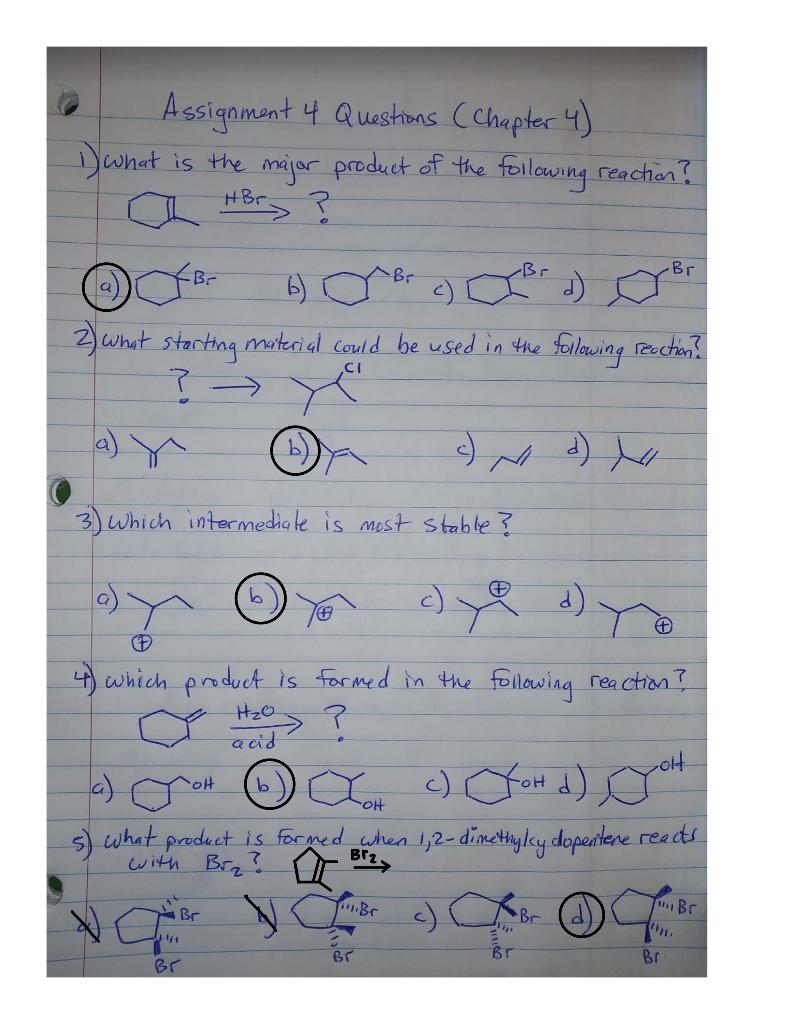 Assignment 4 Questions (Chapter 4)
1) What is the major product of the following reaction?
HBr ?
a) Br b) Br c) Br d) Br
2) What starting material could be used in the following reaction?
? Cl
a) b) c) d)
3) Which intermediate is most stable?
a) + b) + c) + d) +
4) Which product is formed in the following reaction?
H2O ?
acid
a) OH b) OH c) OH d) OH
5) What product is formed when 1,2-dimethylcyclopentene reacts
with Br2? Br2
a) Br Br b) Br Br c) Br Br d) Br Br